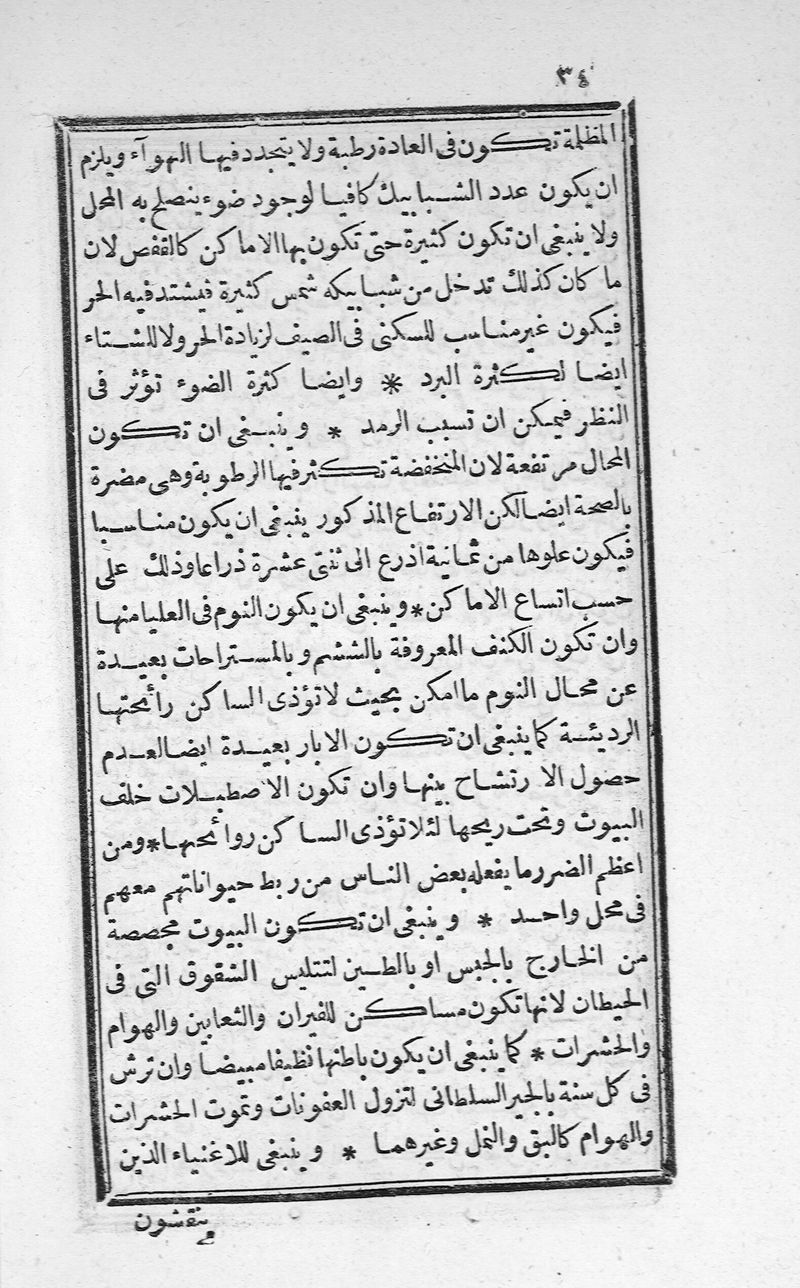 ٣٤
المظلمة تكون فى العادة رطبة ولا يتجدد فيها الهوآء ويلزم
ان يكون عدد الشبابيك كافيا لوجود ضوء ينصلح به المحل
ولا ينبغى ان تكون كثيرة حتى تكون بها الاماكن كالقفص لان
ما كان كذلك تدخل من شبابيكه شمس كثيرة فيشتد فيه الحر
فيكون غير مناسب للسكنى فى الصيف لزيادة الحر ولا للشتاء
ايضا لكثرة البرد * وايضا كثرة الضوء تؤثر فى
النظر فيمكن ان تسبب الرمد * وينبغى ان تكون
المحال مرتفعة لان المنخفضة تكثر فيها الرطوبة وهى مضرة
بالصحة ايضا لكن الارتفاع المذكور ينبغى ان يكون مناسبا
فيكون علوها من ثمانية اذرع الى ثنتى عشرة ذراعا وذلك على
حسب اتساع الاماكن * وينبغى ان يكون النوم فى العليا منها
وان تكون الكنف المعروفة بالششم وبالمستراحات بعيدة
عن محال النوم ما امكن بحيث لا تؤذى الساكن رائحتها
الرديئة كما ينبغى ان تكون الابار بعيدة ايضا لعدم
حصول الارتشاح بينها وان تكون الاصطبلات خلف
البيوت وتحت ريحها لئلا تؤذى الساكن روائحها * ومن
اعظم الضرر ما يفعله بعض الناس من ربط حيواناتهم معهم
فى محل واحد * وينبغى ان تكون البيوت مجصصة
من الخارج بالجبس او بالطين لتتليس الشقوق التى فى
الحيطان لانها تكون مساكن للفيران والثعابين والهوام
والحشرات * كما ينبغى ان يكون باطنها نظيفا مبيضا وان ترش
فى كل سنة بالجير السلطانى لتزول العفونات وتموت الحشرات
والهوام كالبق والنمل وغيرهما * وينبغى للاغنياء الذين
ينقشون